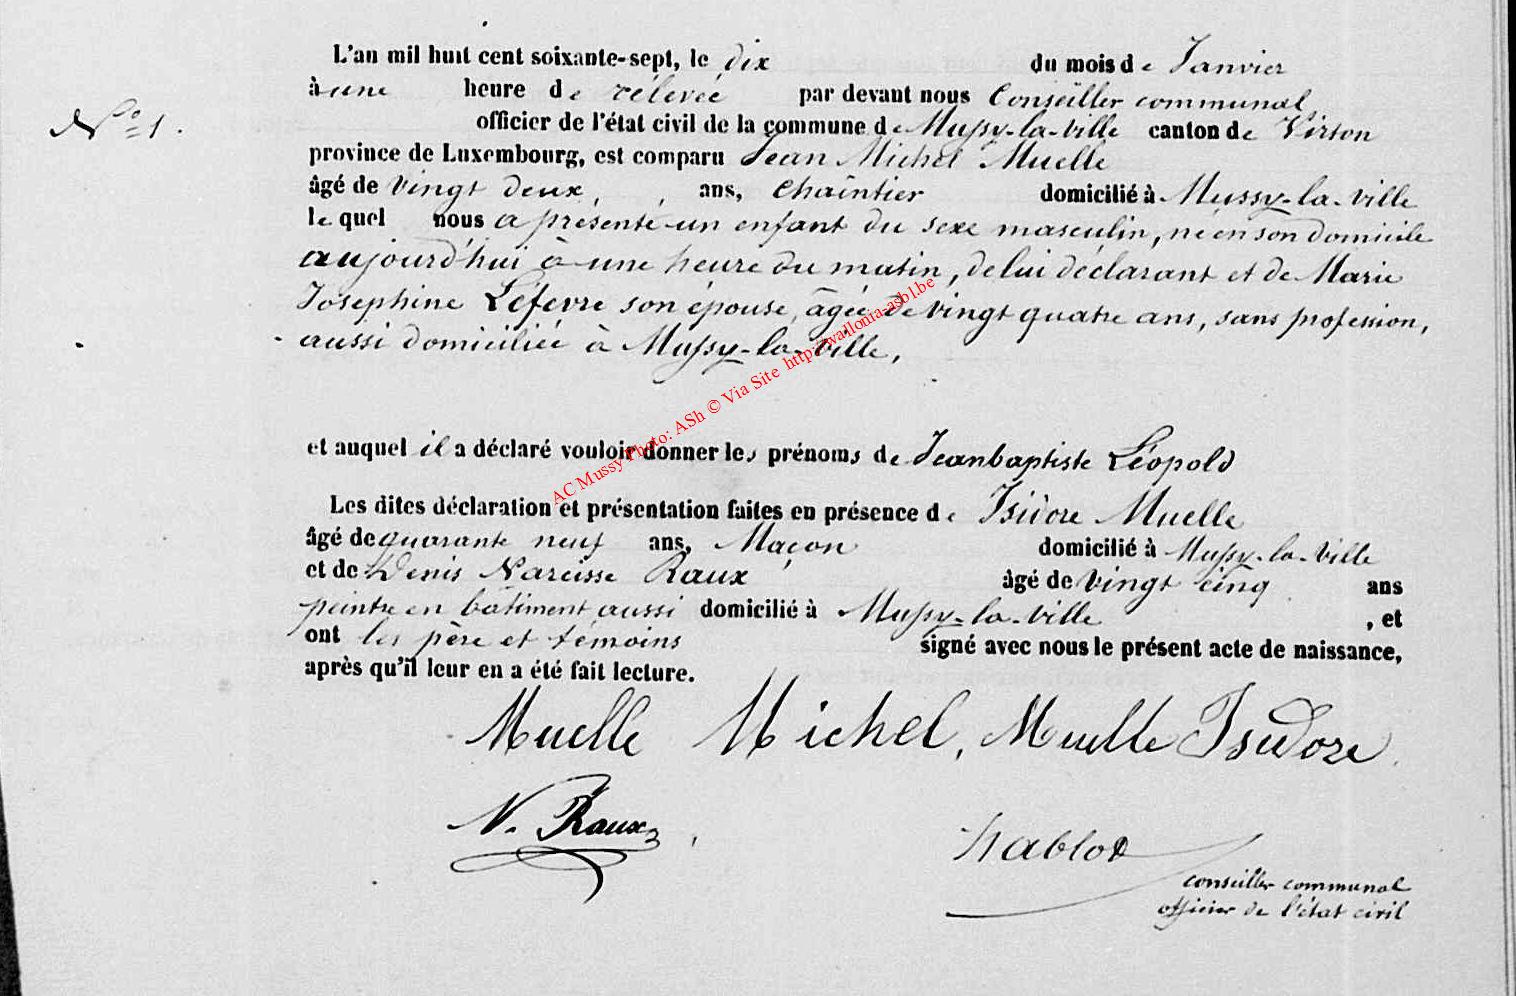 L'an mil huit cent soixante-sept, le dix du mois de Janvier
N° 1.
à une heure de rélevée par devant nous Conseiller communal,
officier de l'état civil de la commune de Mussy-la-ville canton de Virton
province de Luxembourg, est comparu Jean Michel Muelle
âgé de vingt deux, ans, Chaîntier domicilié à Mussy-la-ville
le quel nous a présenté un enfant du sexe masculin, né en son domicile
aujourd'hui à une heure du matin, de lui déclarant et de Marie
Josephine Léfevre son épouse, âgée de vingt quatre ans, sans profession,
aussi domiciliée à Mussy-la-ville,
et auquel il a déclaré vouloir donner les prénoms de Jeanbaptiste Léopold
Les dites déclaration et présentation faites en présence de Isidore Muelle
âgé de quarante neuf ans, Maçon domicilié à Mussy-la-ville
et de Denis Narcisse Raux âgé de vingt cinq ans
peintre en bâtiment aussi domicilié à Mussy-la-ville , et
ont les père et témoins signé avec nous le présent acte de naissance,
après qu'il leur en a été fait lecture.
Muelle Michel, Muelle Isidore
N. Raux
conseiller communal
officier de l'état civil
AC Mussy Photo: ASh © Via Site http://wallonia-asbl.be